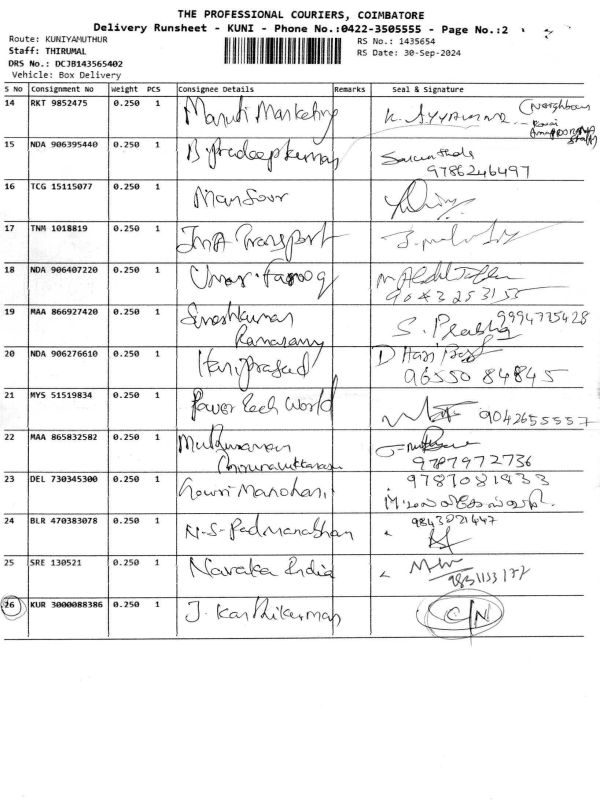 THE PROFESSIONAL COURIERS, COIMBATORE
Delivery Runsheet - KUNI - Phone No.:0422-3505555 - Page No.:2
Route: KUNIYAMUTHUR
RS No.: 1435654
Staff: THIRUMAL
RS Date: 30-Sep-2024
DRS No.: DCJB143565402
Vehicle: Box Delivery
S No Consignment No Weight PCS Consignee Details Remarks Seal & Signature
14 RKT 9852475 0.250 1 Maruti Marketing
15 NDA 906395440 0.250 1 B. Pradeepkumar
9786246497
16 TCG 15115077 0.250 1 Mansoor
17 TNM 1018819 0.250 1 Transport
18 NDA 906407220 0.250 1 Umar Farooq
9043253155
19 MAA 866927420 0.250 1 9994775428
Ramasamy S. Prabhu
20 NDA 906276610 0.250 1 Hariprasad D Hari
96550 84845
21 MYS 51519834 0.250 1 Power Tech World 9042655557
22 MAA 865832582 0.250 1
9787972736
23 DEL 730345300 0.250 1 Gowri Manohari 9787081833
24 BLR 470383078 0.250 1 N.S. Padmanabhan 9843021447
25 SRE 130521 0.250 1 India
26 KUR 3000088386 0.250 1 J. Karthikumar C/N